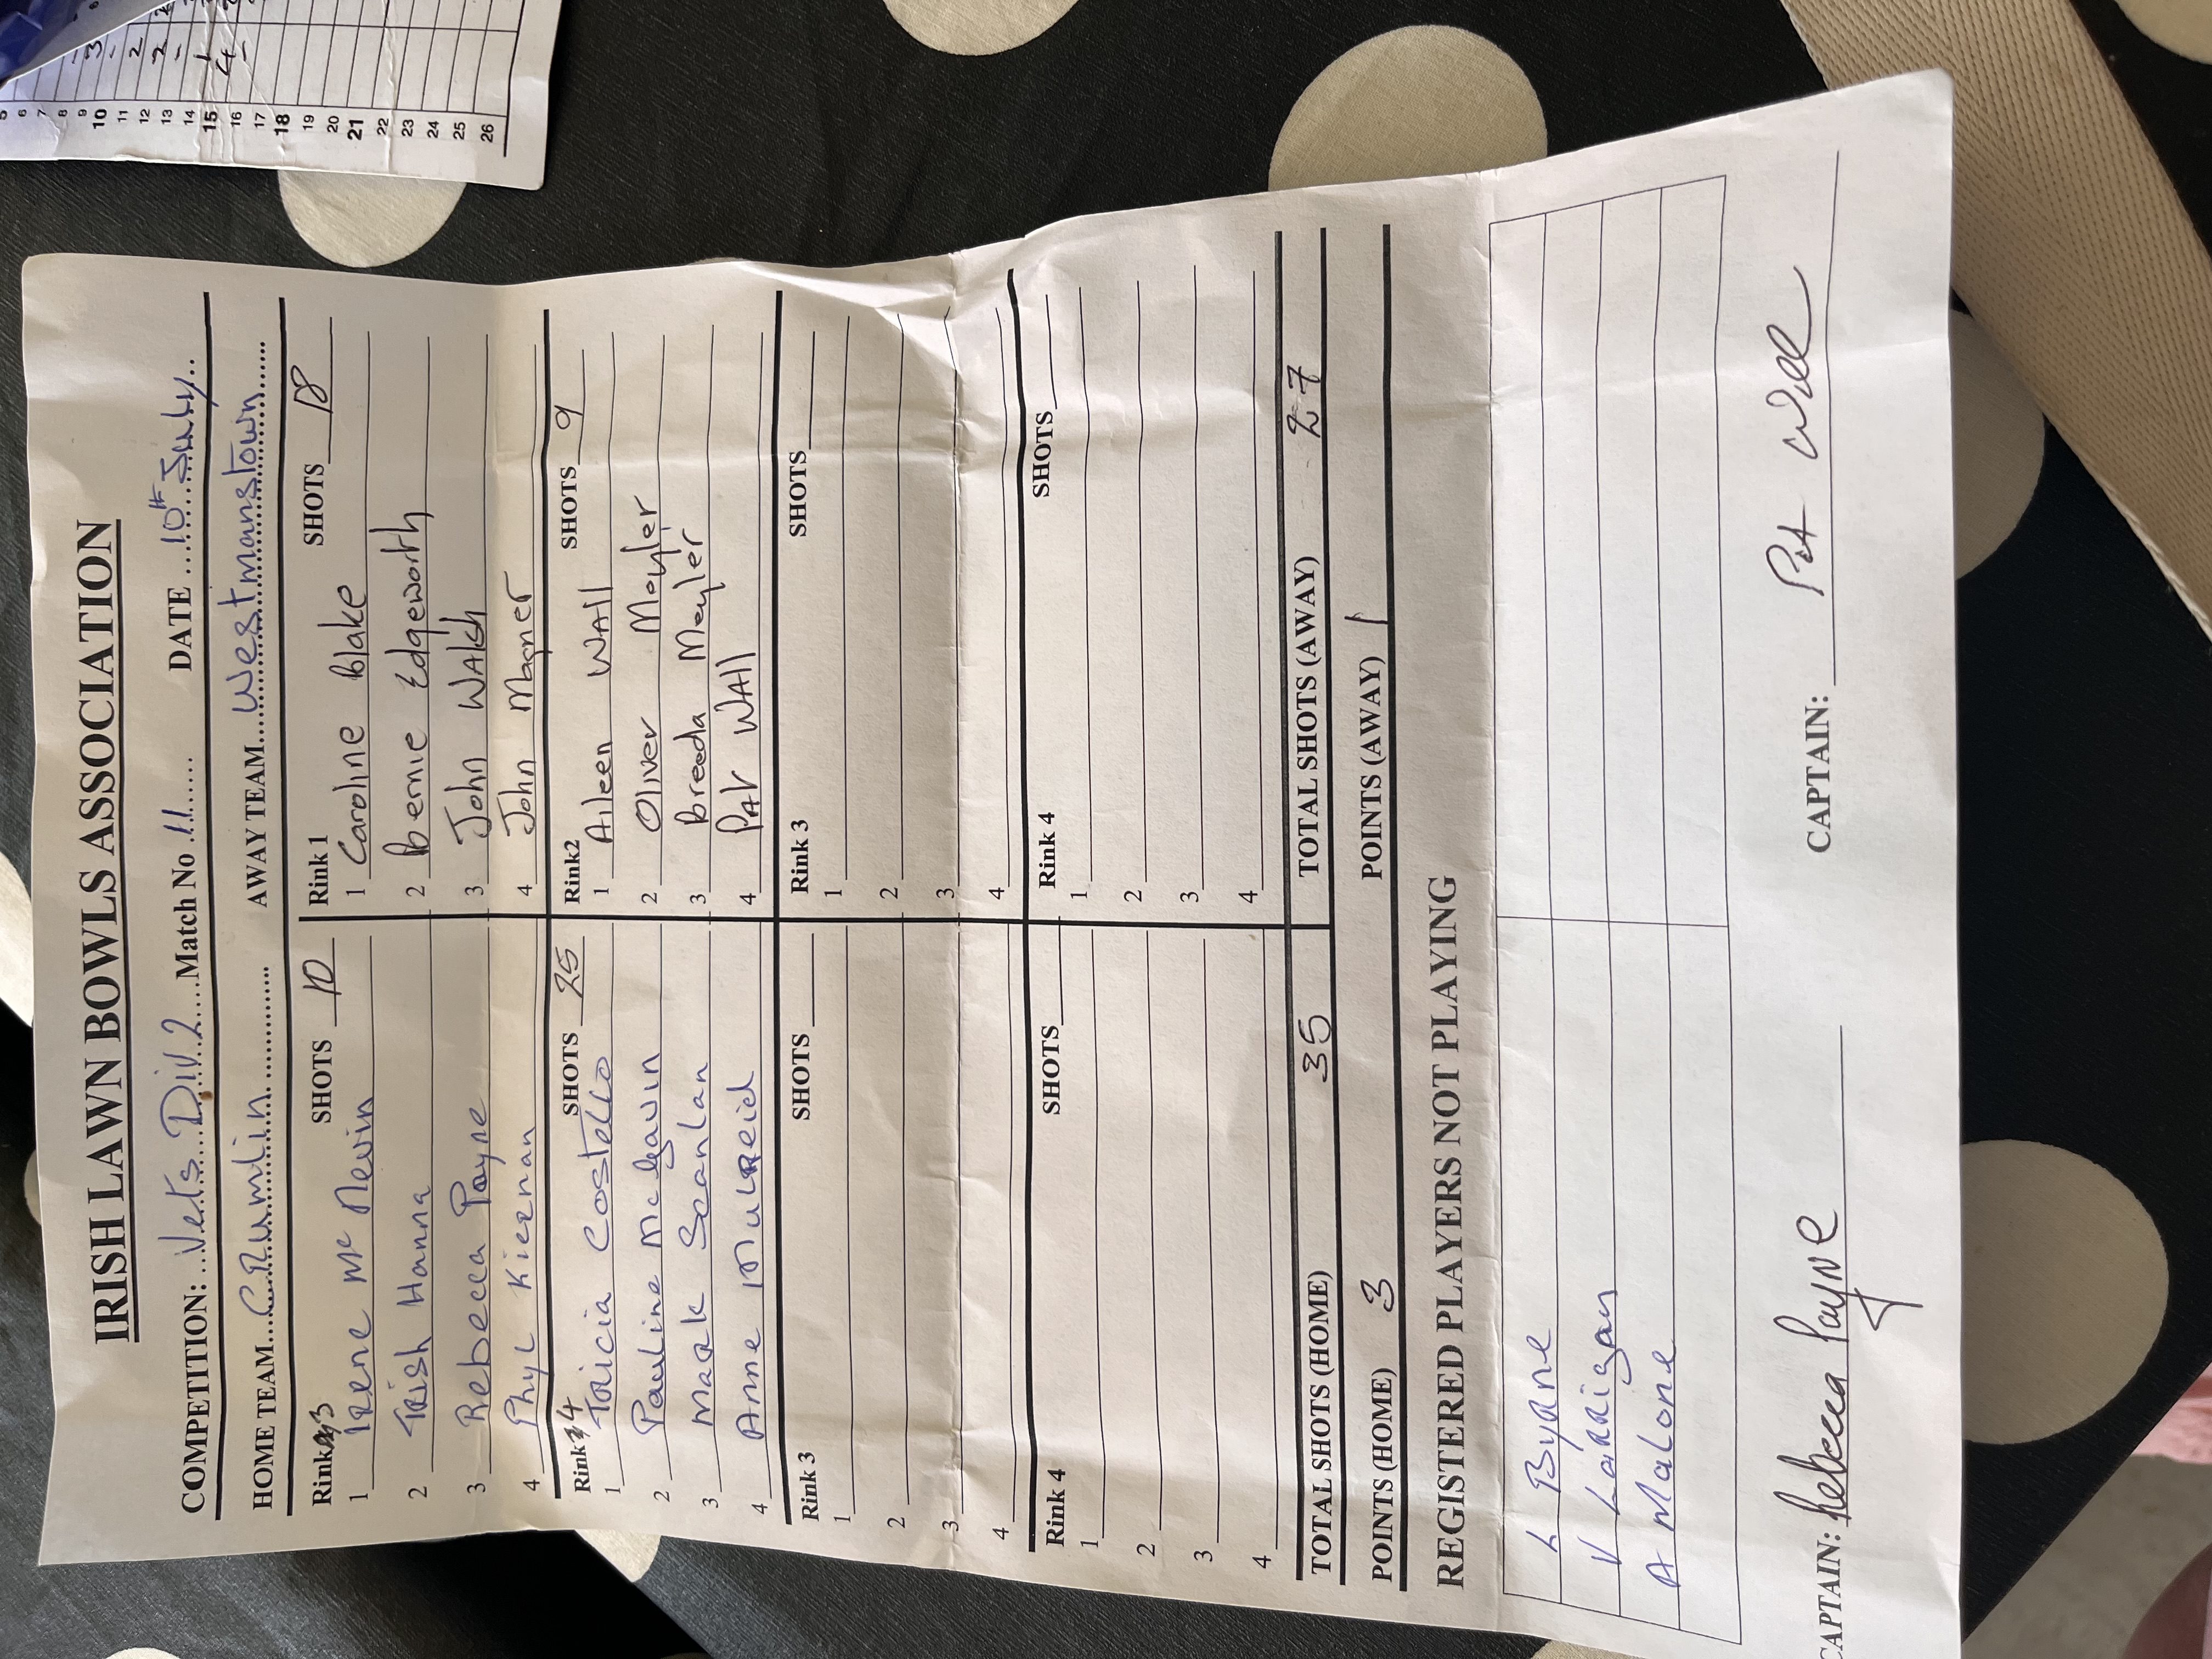 IRISH LAWN BOWLS ASSOCIATION
COMPETITION: Vets Div.2 Match No 11 DATE 10th July
HOME TEAM CRumlin AWAY TEAM Westmanstown
Rink 3 SHOTS 10 Rink 1 SHOTS 18
1 IReene Mc Nevin 1 Caroline Blake
2 TRish Hanna 2 Bernie Edgeworth
3 Rebecca Payne 3 John WAlsh
4 Phyl Kieenan 4 John Magner
Rink 4 SHOTS 25 Rink2 SHOTS 9
1 TRicia Costello 1 Aileen WAll
2 Pauline McGavin 2 Oliver Meyler
3 MaRk Scanlan 3 Breeda Meyler
4 Anne MulReid 4 PAT WAll
Rink 3 SHOTS Rink 3 SHOTS
1 1
2 2
3 3
4 4
Rink 4 SHOTS Rink 4 SHOTS
1 1
2 2
3 3
4 4
TOTAL SHOTS (HOME) 35 TOTAL SHOTS (AWAY) 27
POINTS (HOME) 3 POINTS (AWAY) 1
REGISTERED PLAYERS NOT PLAYING
L ByRne
V LaRRigan
A Malone
CAPTAIN: Rebecca Payne CAPTAIN: Pat Wall
6
7
8
9 3
10
11 2
12
13 2
14
15 1
16 4
17
18
19
20
21
22
23
24
25
26